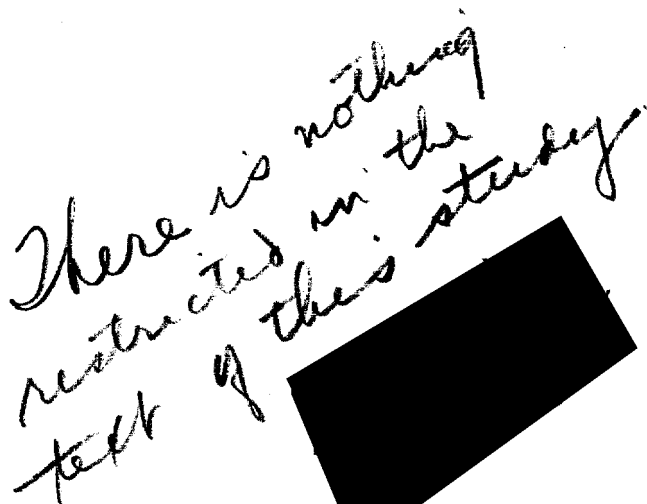 There is nothing
restricted in the
text of this study.